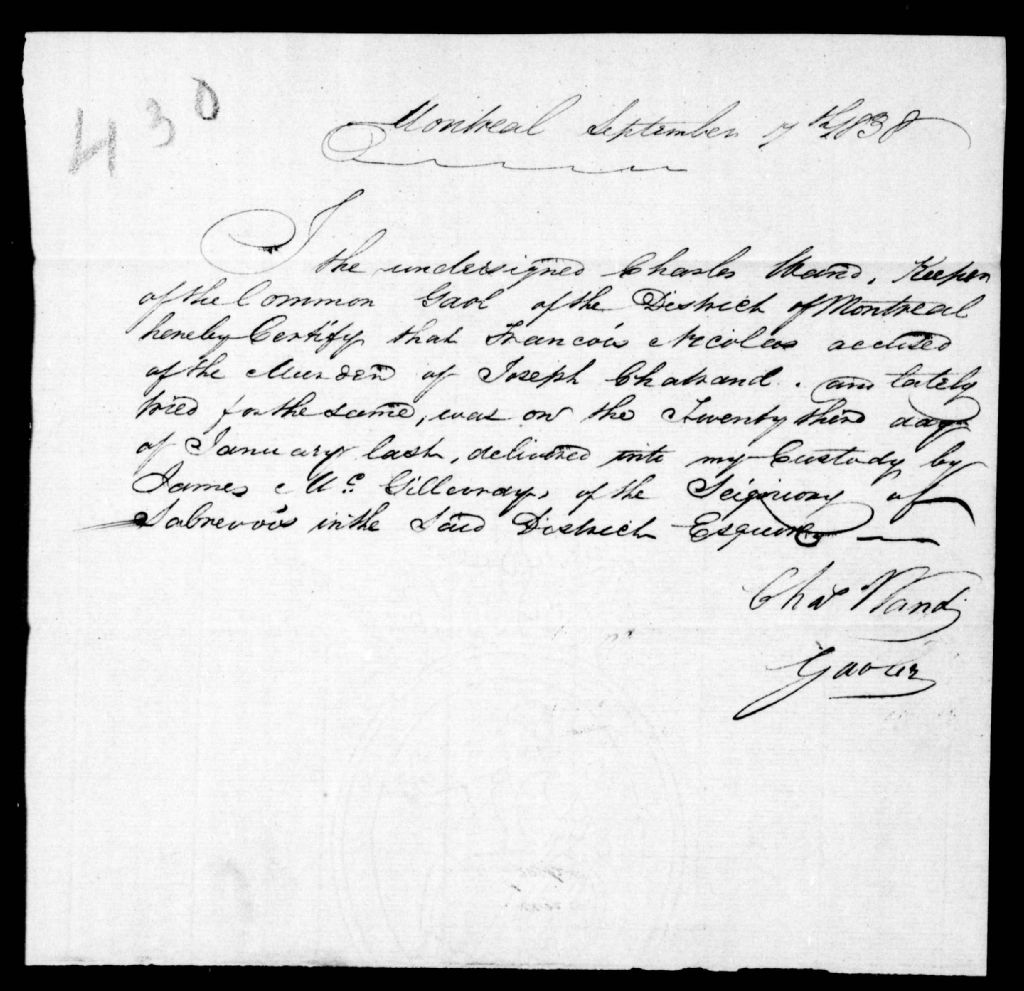 430
Montreal September 7th 1838
I the undersigned Charles Wand, Keeper
of the Common Gaol of the District of Montreal
hereby Certify that Francois Nicolas accused
of the Murder of Joseph Chatrand. and lately
tried for the same, was on the Twenty third day
of January last, delivered into my Custody by
James Mc. Gillvray, of the Seigniory of
Sabrevois in the Said District Esquire
Chas Wand
Gaoler